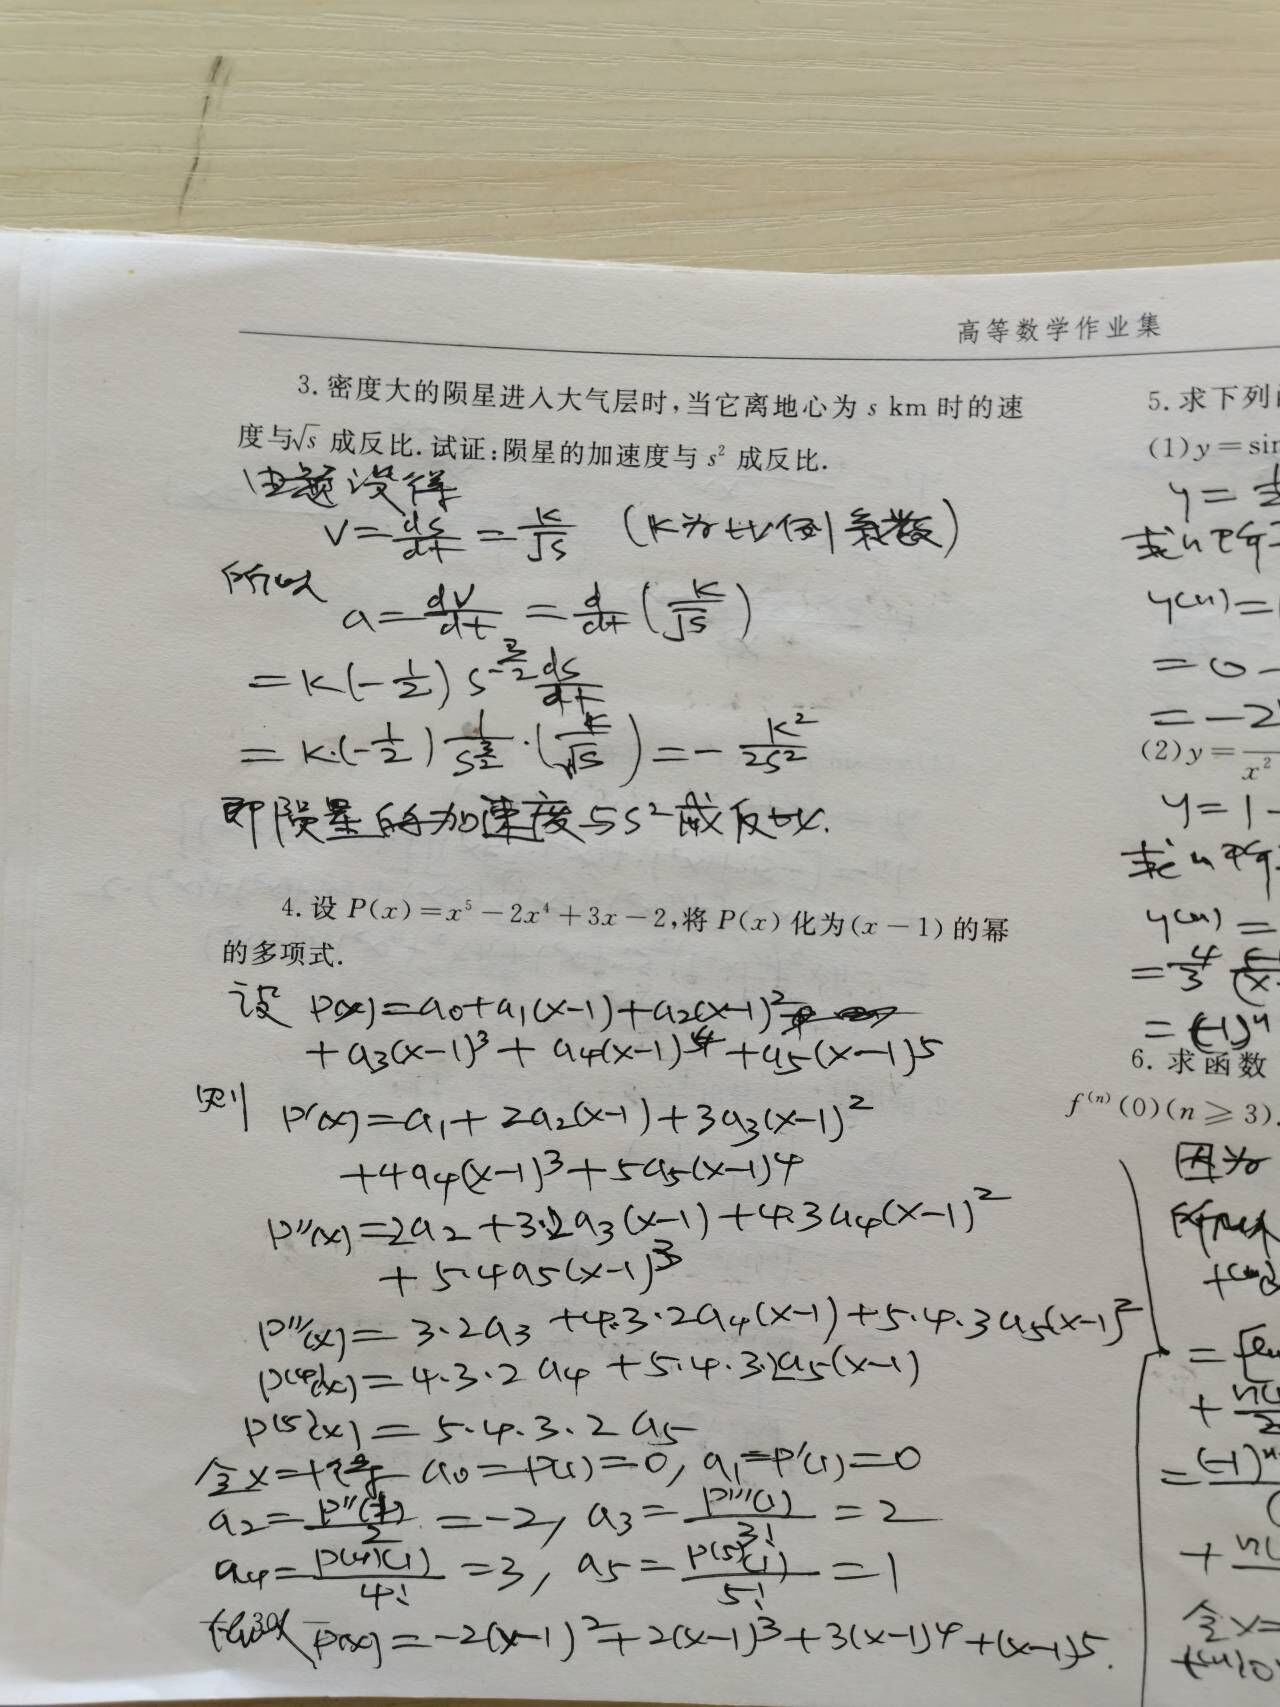 高等数学作业集
3. 密度大的陨星进入大气层时,当它离地心为 s km 时的速
度与√s 成反比. 试证:陨星的加速度与 s² 成反比.
由题设得
V=ds/dt=k/√s (k为比例系数)
所以
a=dv/dt=d/dt(k/√s)
=k(-1/2)s^(-3/2) ds/dt
=k·(-1/2) 1/s^(3/2)·(k/√s)=-k²/2s²
即陨星的加速度与s²成反比.
4. 设 P(x)=x⁵-2x⁴+3x-2,将 P(x)化为(x-1)的幂
的多项式.
设 P(x)=a₀+a₁(x-1)+a₂(x-1)²
+a₃(x-1)³+a₄(x-1)⁴+a₅(x-1)⁵
则 P'(x)=a₁+2a₂(x-1)+3a₃(x-1)²
+4a₄(x-1)³+5a₅(x-1)⁴
P''(x)=2a₂+3·2a₃(x-1)+4·3a₄(x-1)²
+5·4a₅(x-1)³
P'''(x)=3·2a₃+4·3·2a₄(x-1)+5·4·3a₅(x-1)²
P⁽⁴⁾(x)=4·3·2a₄+5·4·3·2a₅(x-1)
P⁽⁵⁾(x)=5·4·3·2a₅
令x=1得 a₀=P(1)=0, a₁=P'(1)=0
a₂=P''(1)/2=-2, a₃=P'''(1)/3!=2
a₄=P⁽⁴⁾(1)/4!=3, a₅=P⁽⁵⁾(1)/5!=1
P(x)=-2(x-1)²+2(x-1)³+3(x-1)⁴+(x-1)⁵.
5. 求下列
(1) y=sin
y=
求n阶
y⁽ⁿ⁾=
=0-
=-2
(2) y=
x²
y=1-
求n阶
y⁽ⁿ⁾=
=4/3
=(-1)ⁿ
6. 求函数
f⁽ⁿ⁾(0)(n≥3).
因为
=
+
=(-1)ⁿ
+
令x=